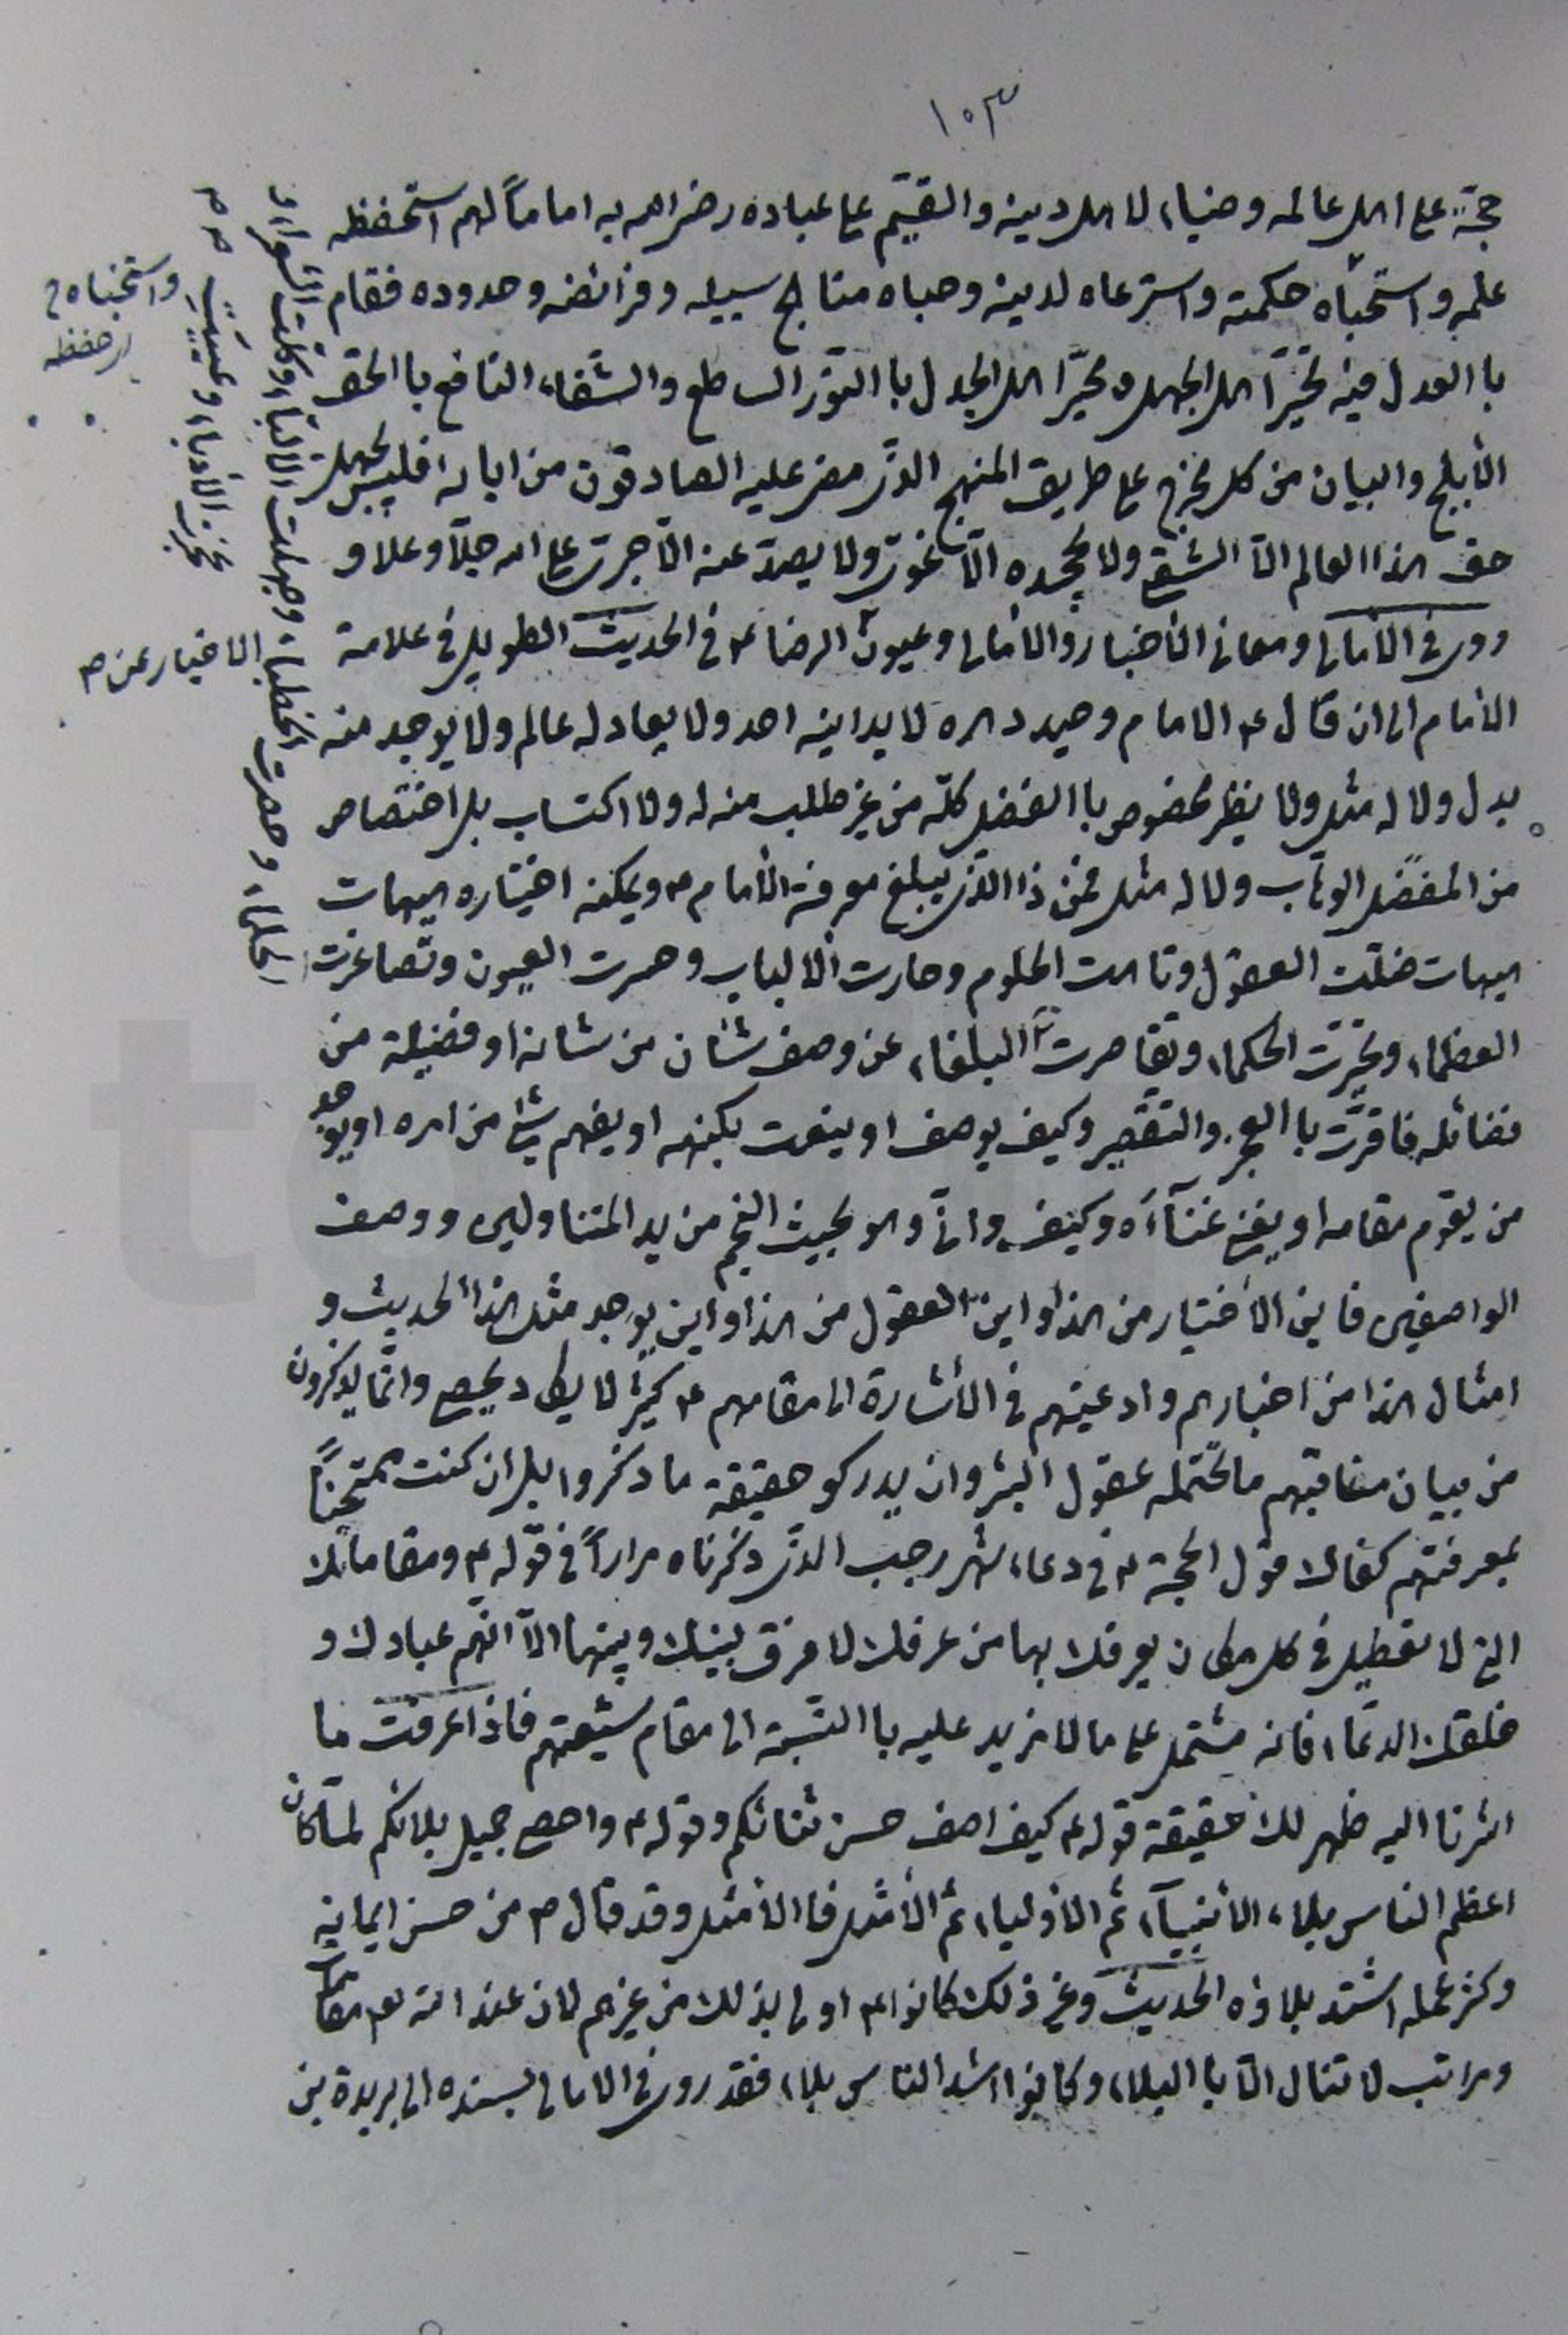 ١٠٣
حجّة على اهل عالمه وضياء لاهل دينه والقيّم على عباده رضى الله به اماماً لهم استحفظه
علمه واستخباه حكمته واسترعاه لدينه وحباه مناهج سبيله وفرائضه وحدوده فقام
باالعدل فيه تحيّر اهل الجهل وتحيّر اهل الجدل باالنّور الساطع والشفاء النافع باالحق
الأبلج والبيان من كل مخرج على طريق المنهج الذى مضى عليه الصادقون من ابائه فليس يجهل
حق هذا العالم الّا الشقى ولا يجحده الّا غوىّ ولا يصدّ عنه الّا جرىّ على الله جلّ وعلا و
روى فى الامالى ومعانى الأخبار والأمالى وعيون الرضا ع فى الحديث الطويل فى علامة
الأمام الى ان قال ع الامام وحيد دهره لا يدانيه احد ولا يعادله عالم ولا يوجد منه
بدل ولا له مثل ولا نظير مخصوص باالفضل كلّه من غير طلب منه له ولا اكتساب بل اختصاص
من المفضل الوهّاب ولا له مثل فمن ذا الذى يبلغ معرفة الأمام ع ويمكنه اختياره هيهات
هيهات ضلّت العقول وتاهت الحلوم وحارت الألباب وحسرت العيون وتصاغرت
العظماء وتحيّرت الحكماء وتقاصرت البلغاء عن وصف شان من شانه او فضيلة من
فضائله فاقرّت باالعجز والتقصير وكيف يوصف او ينعت بكنهه او يفهم شئ من امره او يوجد
من يقوم مقامه او يغنى غنآءه وكيف وانّى وهو بحيث النجم من يد المتناولين ووصف
الواصفين فاين الأختيار من هذا واين العقول من هذا واين يوجد مثل هذا الحديث و
امثال هذا من اخبارهم وادعيتهم فى الأشارة الى مقامهم ع كثير لا يكاد يحصى وانّما يذكرون
من بيان مناقبهم ما تحتمله عقول البشر وان يدركو حقيقة ما ذكروا بل ان كنت ممتحناً
بمعرفتهم كفاك قول الحجة ع فى دعاء شهر رجب الذى ذكرناه مراراً فى قوله ع ومقاماتك
التى لا تعطيل فى كل مكان يعرفك بها من عرفك لا فرق بينك وبينها الّا انّهم عبادك و
خلقك الدعّاء فانه مشتمل على ما لا مزيد عليه باالنّسبة الى مقام شيعتهم فاذا عرفت ما
اشرنا اليه ظهر لك حقيقة قوله ع كيف اصف حسن ثنائكم وقوله ع واحصى جميل بلائكم لمّا كان
اعظم الناس بلاء الأنبيآء ثم الأولياء ثم الأمثل فاالأمثل وقد قال ص من حسن ايمانه
وكثر عمله اشتد بلاؤه الحديث وغير ذلك كانوا ع اولى بذلك من غيرهم لان عند الله لهم مقامات
ومراتب لا تنال الّا باالبلاء وكانوا اشد الناس بلاء فقد روى فى الامالى بسنده الى بريدة بن
واستخباه
حفظه
الاخبار عن
الحلماء وحصرت الخطباء وجهلت الالبّاء وكلّت الشعراء و
عجزت الأدباء وعييت